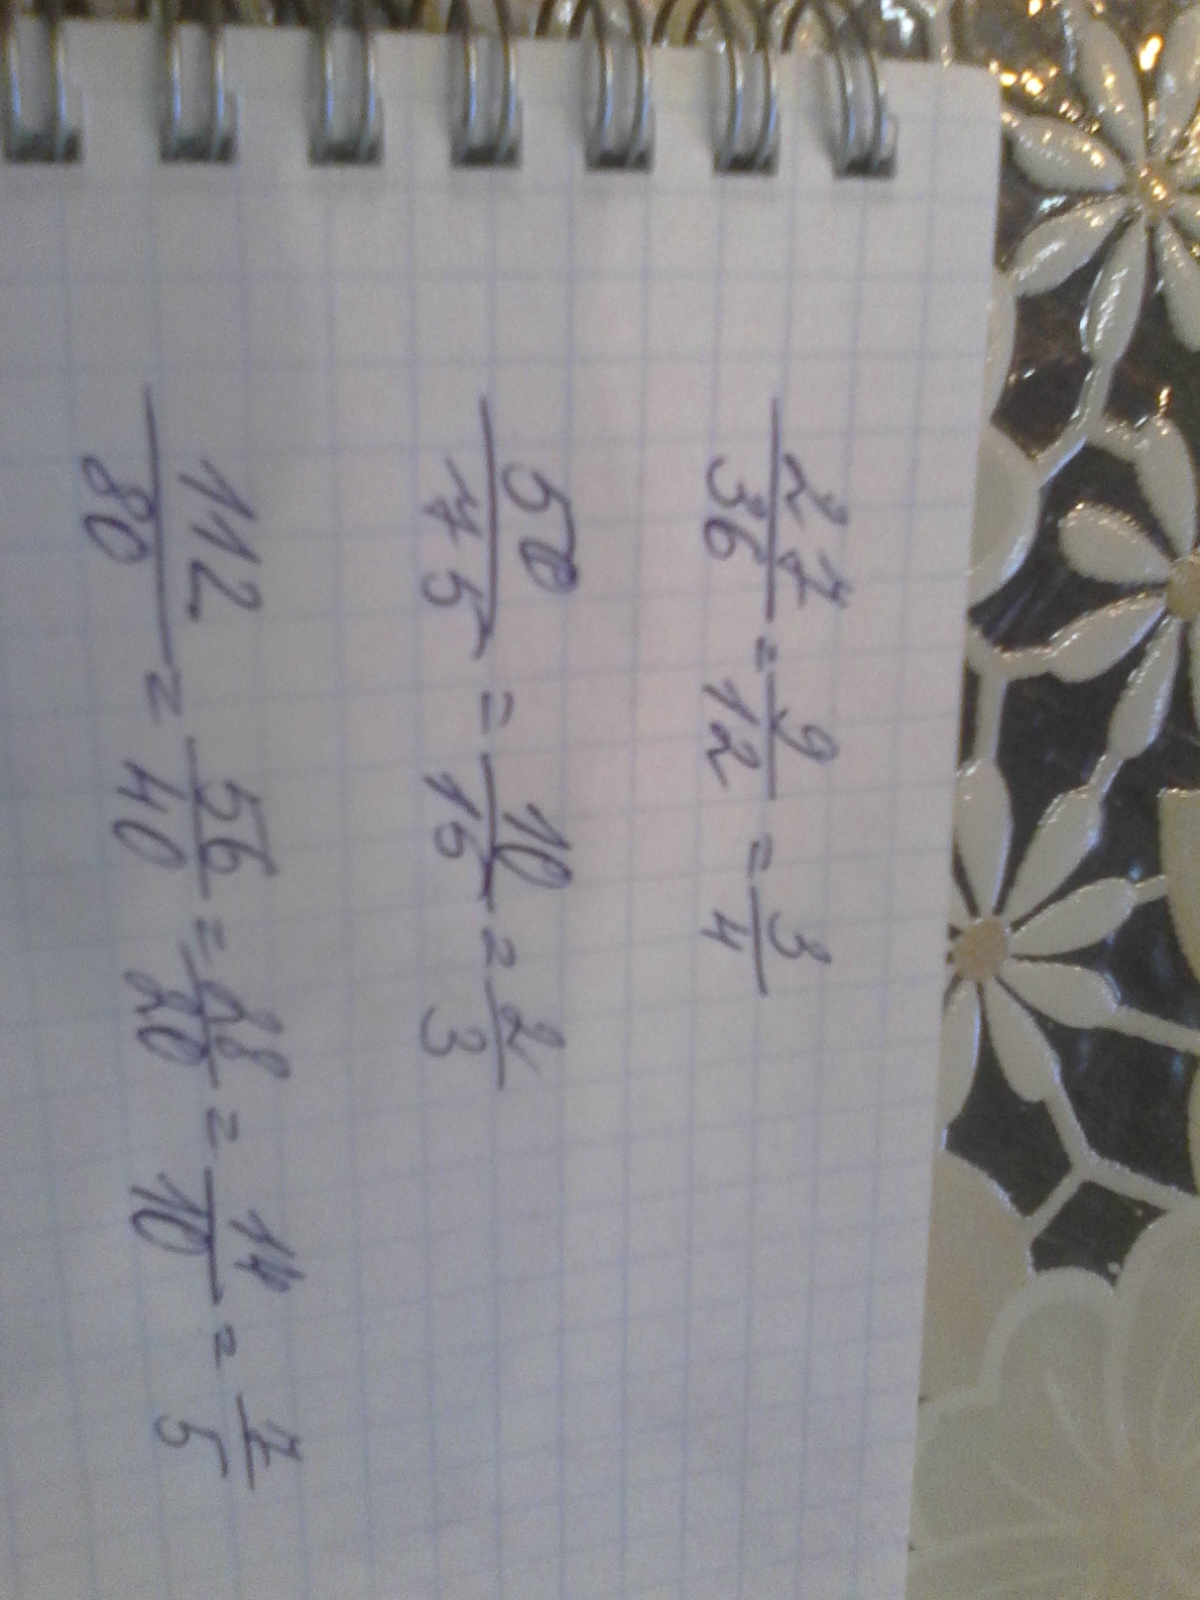 27/36 = 9/12 = 3/4
50/75 = 10/15 = 2/3
112/80 = 56/40 = 28/20 = 14/10 = 7/5